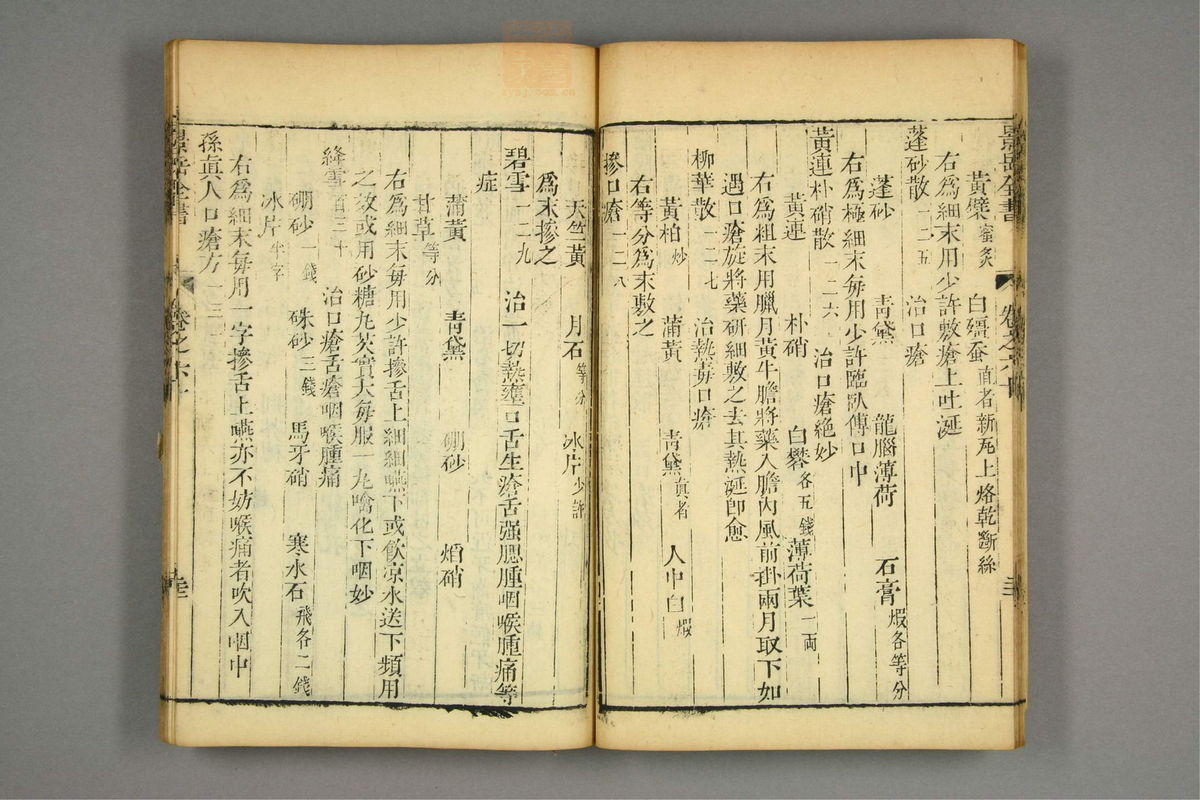 景岳全書
卷之六十
黃蘗蜜炙 白殭蚕直者新瓦上烙乾斷絲
右為細末用少許敷瘡上吐涎
蓬砂散一二五 治口瘡
蓬砂 青黛 龍腦薄荷 石膏煅各等分
右為極細末每用少許臨臥傅口中
黃連朴硝散一二六 治口瘡絶妙
黃連 朴硝 白礬各五錢 薄荷葉一両
右為粗末用臘月黃牛膽將藥入膽內風前掛兩月取下如
遇口瘡旋將藥研細敷之去其熱涎卽愈
柳華散一二七 治熱毒口瘡
黃柏炒 蒲黃 青黛眞者 人中白煅
右等分為末敷之
摻口瘡一二八
天竺黃 月石等分 氷片少許
為末摻之
碧雪一二九 治一切熱壅口舌生瘡舌强腮腫咽喉腫痛等
症
蒲黃 青黛 硼砂 焰硝
甘草等分
右為細末每用少許摻舌上細細嚥下或飲凉水送下頻用
之效或用砂糖丸芡實大每服一丸噙化下咽妙
絳雪百三十 治口瘡舌瘡咽喉腫痛
硼砂一錢 硃砂三錢 馬牙硝 寒水石飛各二錢
氷片半字
右為細末每用一字摻舌上嚥亦不妨喉痛者吹入咽中
孫眞人口瘡方一三一
景岳全書
卷之六十